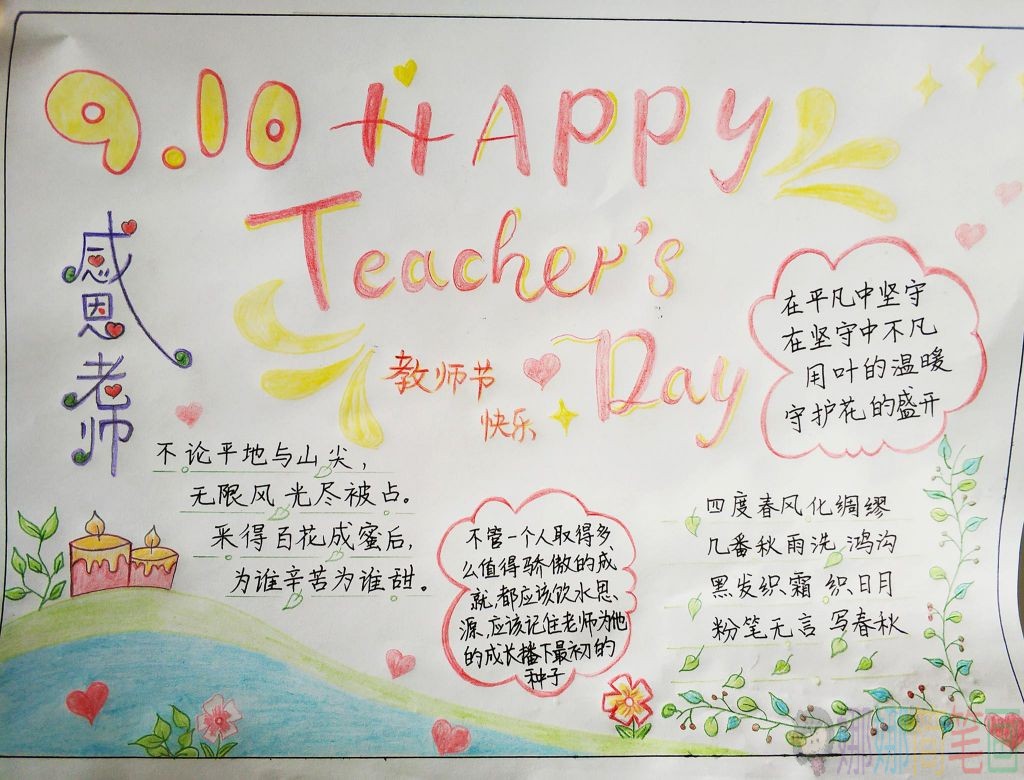 9.10 HAPPY
Teacher's
Day
感恩老师
教师节
快乐
在平凡中坚守
在坚守中不凡
用叶的温暖
守护花的盛开
不论平地与山尖，
无限风光尽被占。
采得百花成蜜后，
为谁辛苦为谁甜。
不管一个人取得多
么值得骄傲的成
就，都应该饮水思
源，应该记住老师为他
的成长播下最初的
种子
四度春风化绸缪
几番秋雨洗鸿沟
黑发织霜织日月
粉笔无言写春秋
娜娜简笔画